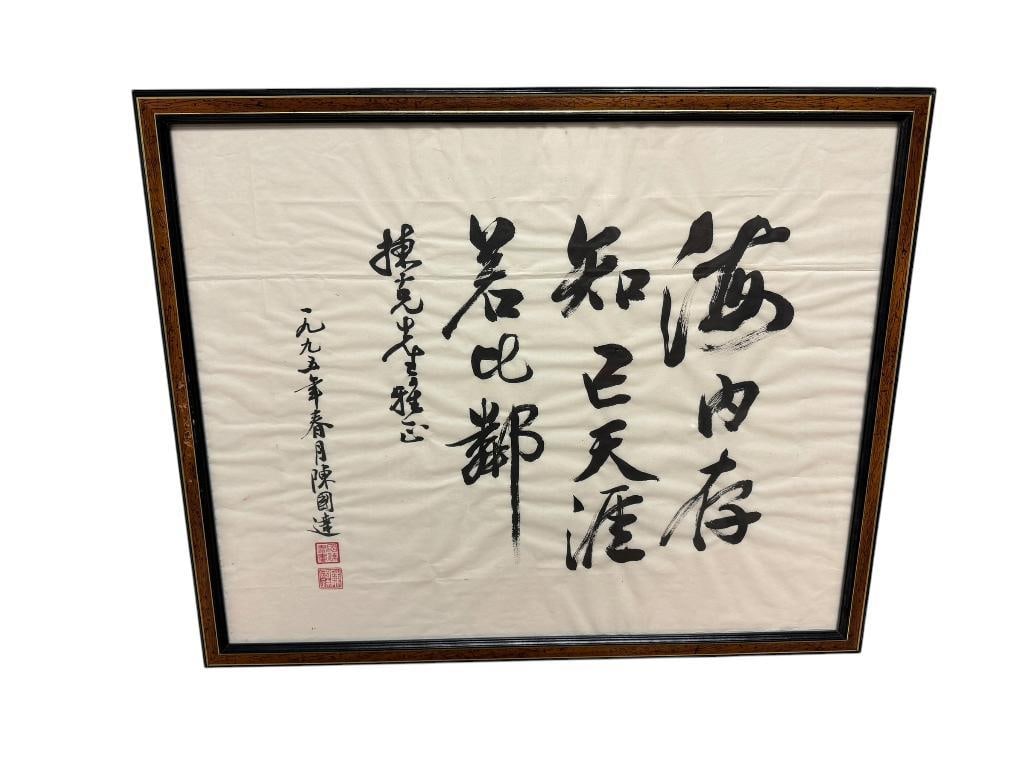 海内存
知己天涯
若比鄰
揀克先生雅正
一九九五年春月陳國達